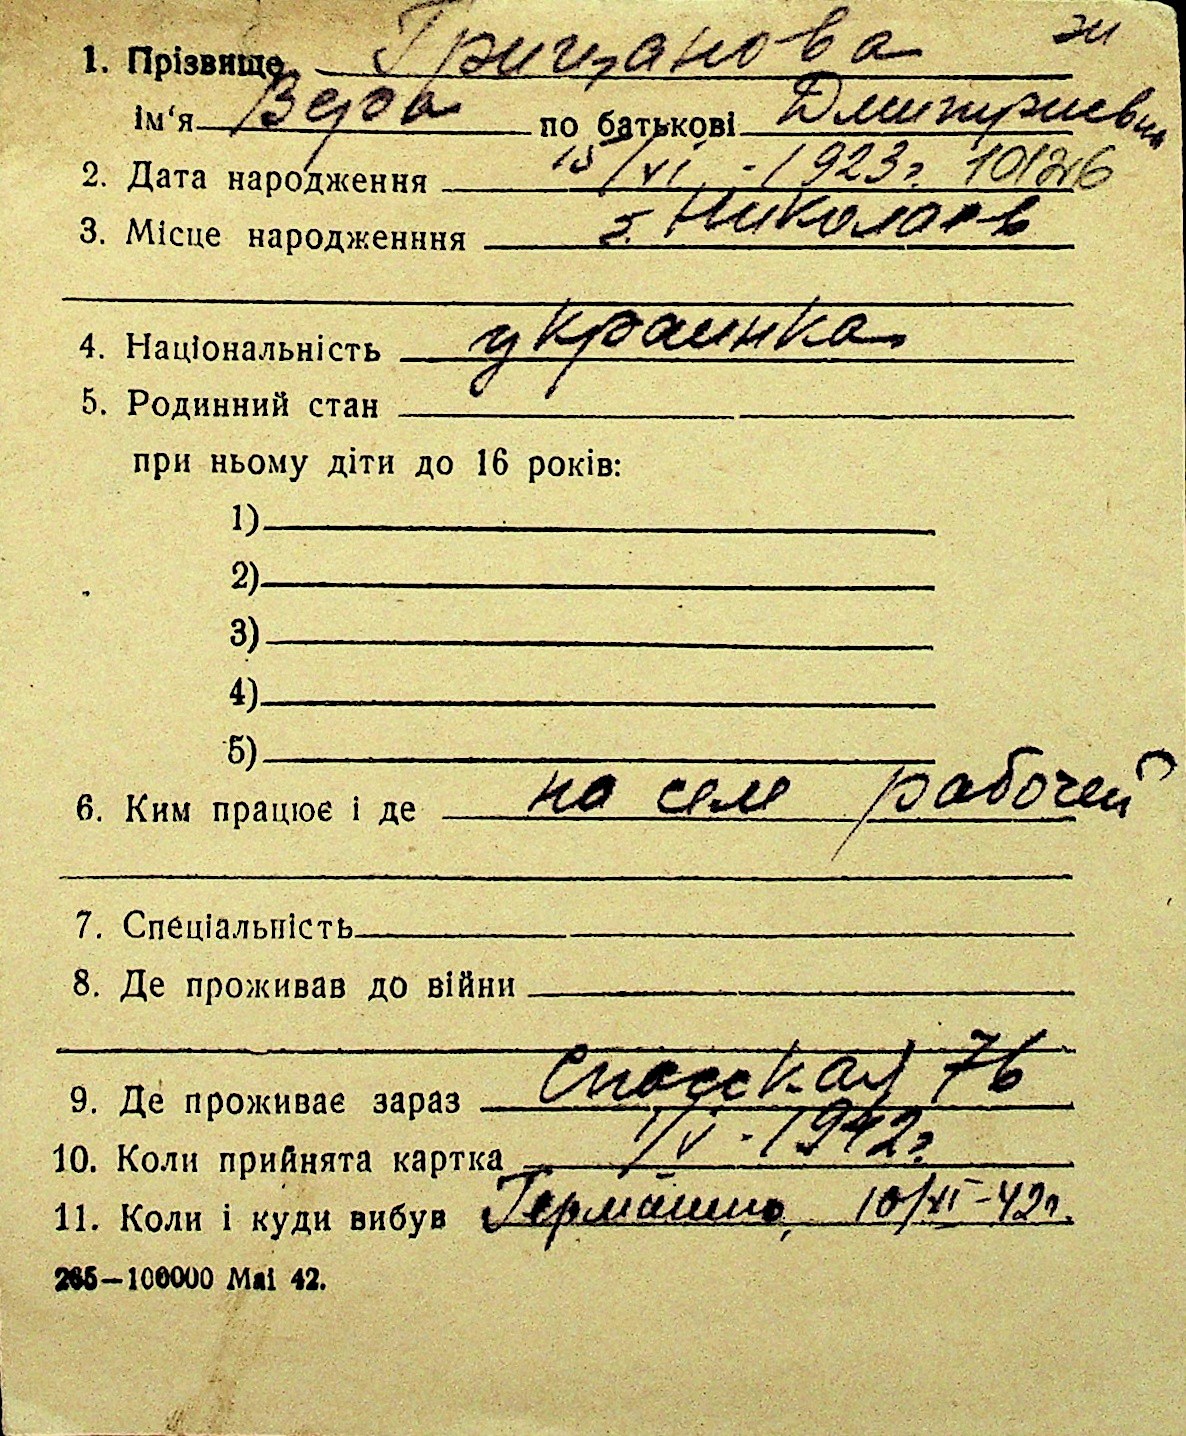 1. Прізвище Грицанова
ім‘я Вера по батькові Дмитриевна
2. Дата народження 15/VI - 1923г. 101246
3. Місце народженння г. Николаев
4. Національність украинка
5. Родинний стан
при ньому діти до 16 років:
1)
2)
3)
4)
5)
6. Ким працює і де на селе рабочей
7. Спеціальність
8. Де проживав до війни
9. Де проживає зараз Спасская 76
10. Коли прийнята картка 1/V - 1942г.
11. Коли і куди вибув Германию, 10/VI-42г.
265—100000 Mai 42.